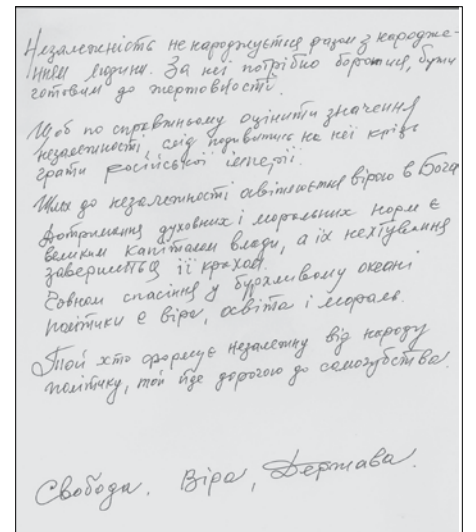 Незалежність не народжується разом з народже-
нням людини. За неї потрібно боротися, бути
готовим до жертовності.
Щоб по справжньому оцінити значення
незалежності, слід подивитись на неї крізь
грати російської імперії.
Шлях до незалежності освітлюється вірою в Бога
Дотримання духовних і моральних норм є
великим капіталом влади, а їх нехтування
завершиться її крахом.
Човном спасіння у бурхливому океані
політики є віра, освіта і мораль.
Той хто формує незалежну від народу
політику, той йде дорогою до самогубства.
Свобода. Віра, Держава.